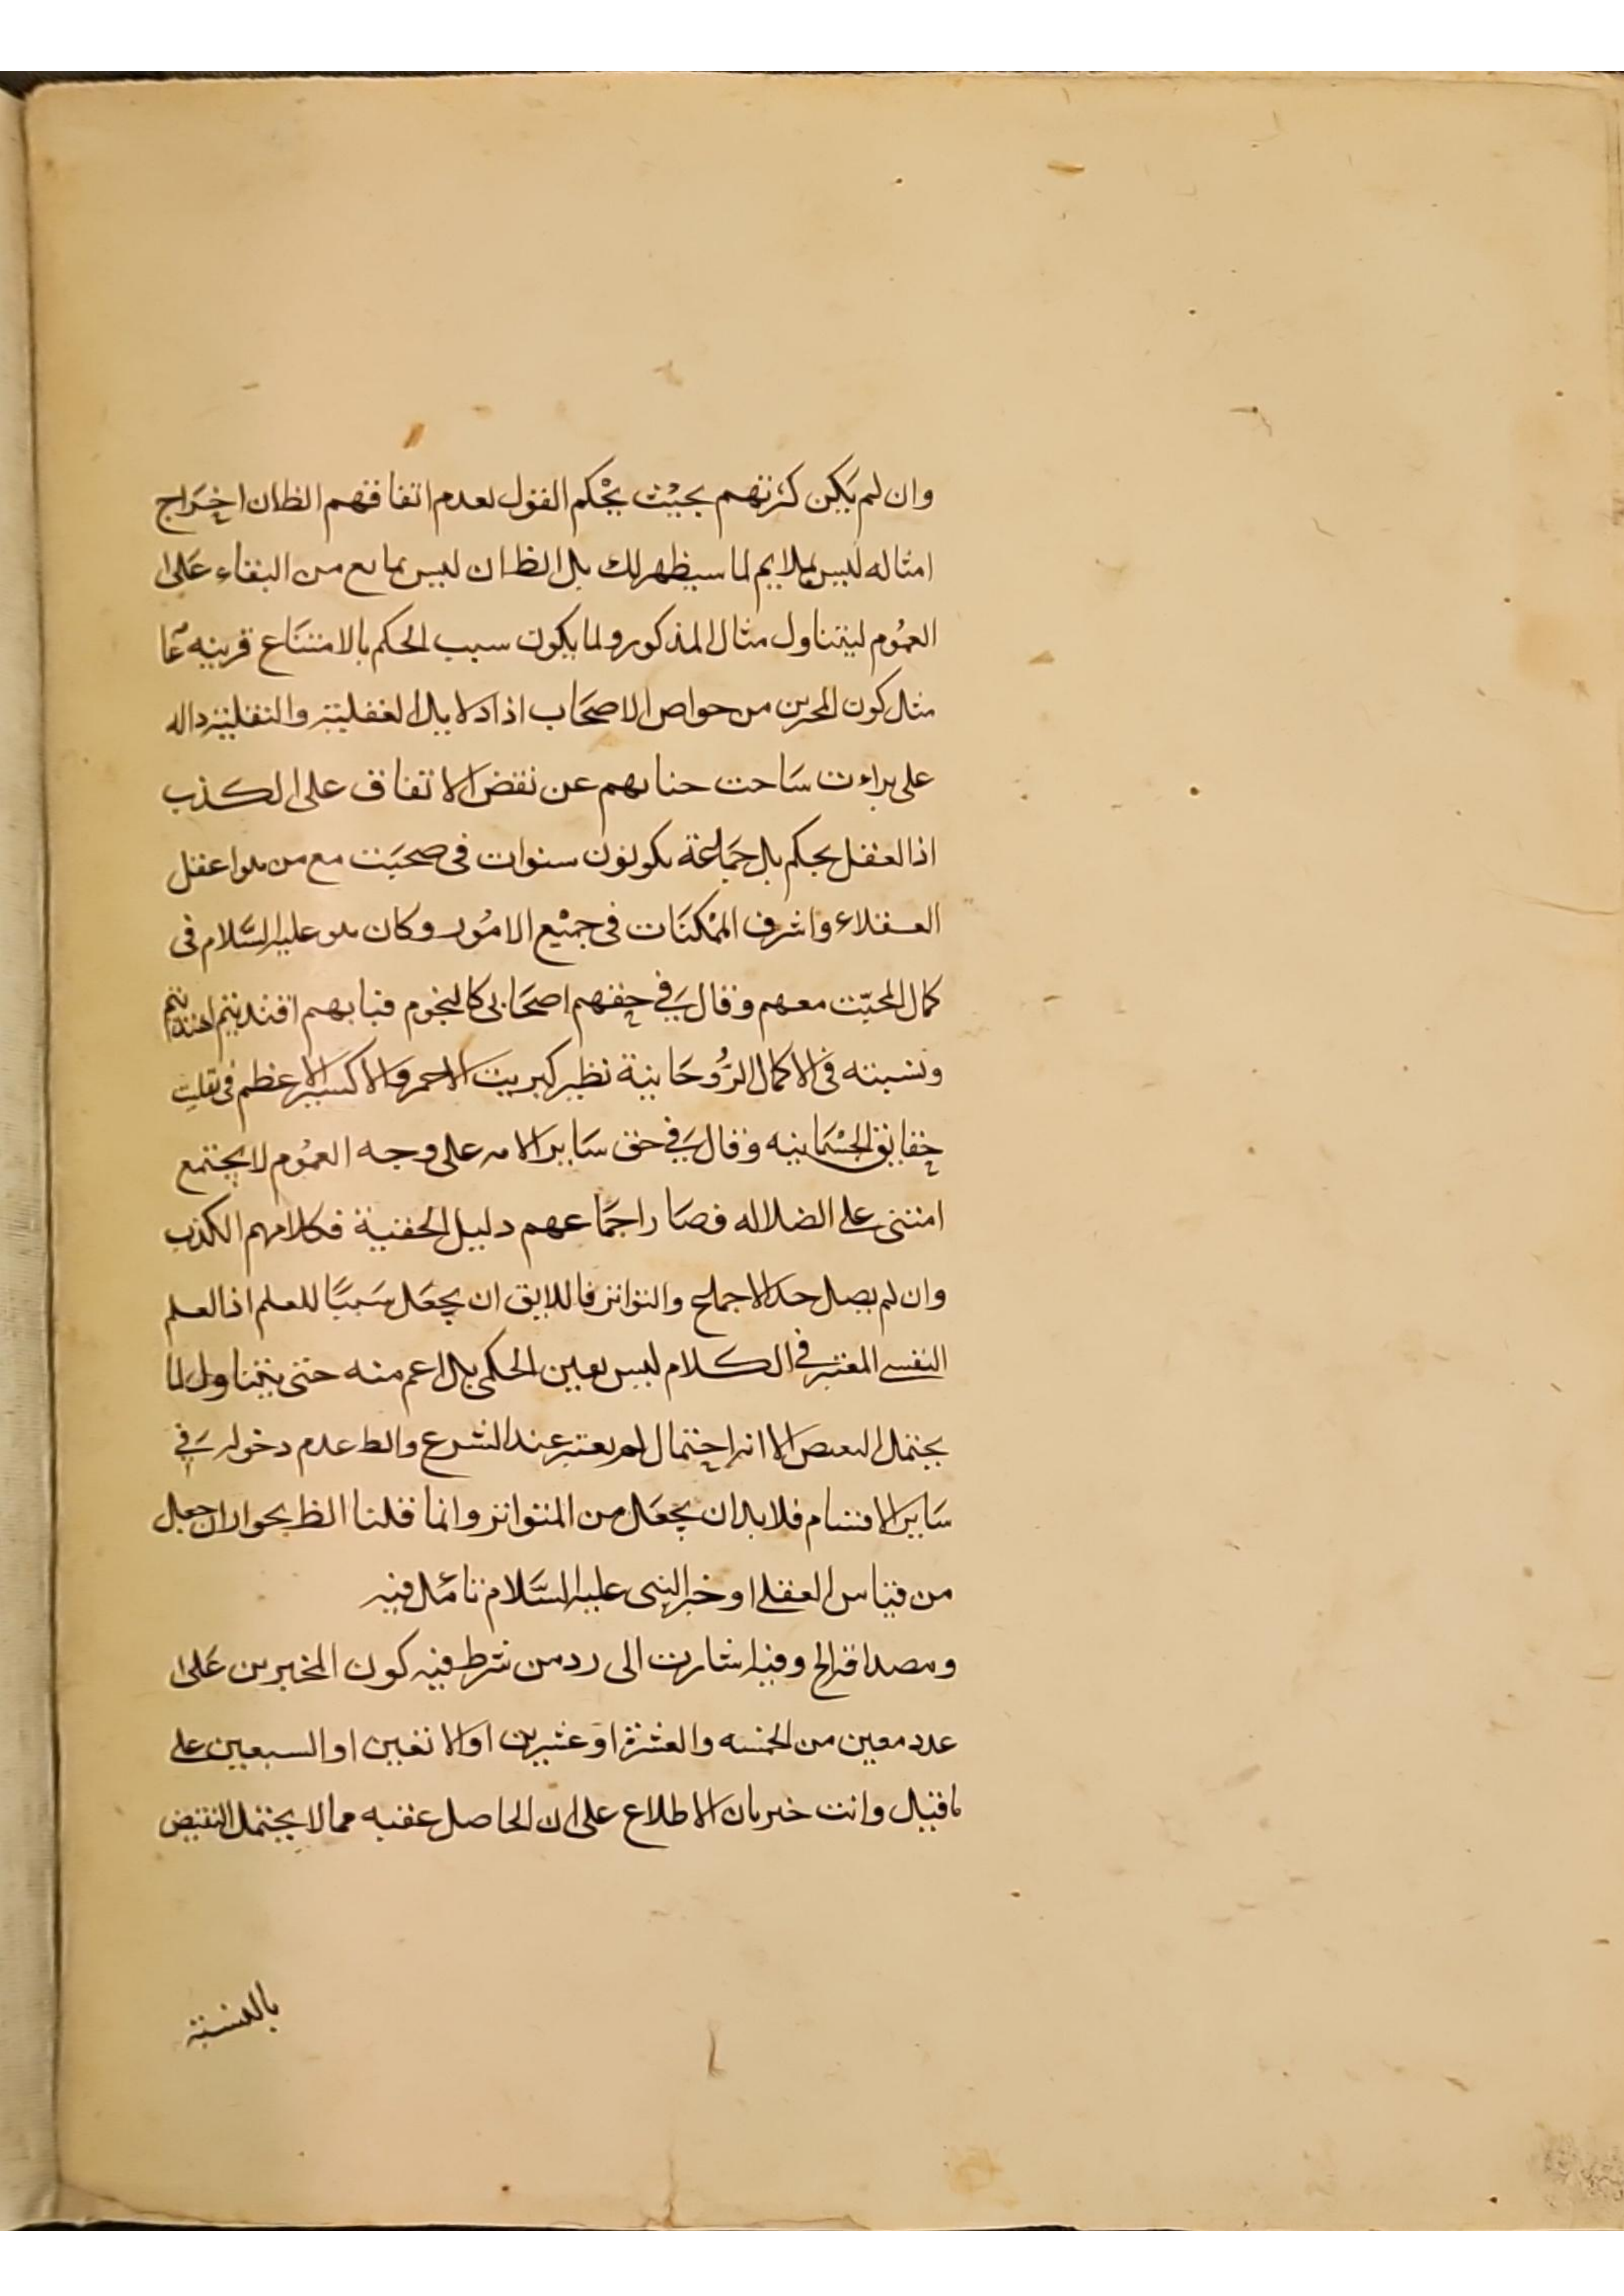 وان لم يكن كثرتهم بحيث يحكم العقل لعدم اتفاقهم الظان اخراج
امثاله ليس بملايم لما سيظهر لك بل الظ ان ليس بمانع من البقاء على
العموم ليتناول مثال المذكور ولما يكون سبب الحكم بالامتناع قرينه ما
مثل كون المخبرين من خواص الاصحاب اذ ادلايل العقلية والنقلية داله
على براءت ساحت جنابهم عن نقض الاتفاق على الكذب
اذ العقل يحكم بل جماعة يكونون سنوات فى صحبت مع من هوا عقل
العقلاء واشرف الممكنات فى جميع الامور وكان هو عليه السلام فى
كمال المحبت معهم وقال في حقهم اصحابى كالنجوم فبابهم اقتديتم اهتديتم
ونسبته فى الاكمال الروحانية نظير كبريت الاحمر والاكسير الاعظم فى تقليب
حقايق الجسمانيه وقال في حق ساير الامه على وجه العموم لا يجتمع
امتى على الضلاله فصار اجماعهم دليل الحقية فكلامهم الكذب
وان لم يصل حد الاجماع والتواتر فاللايق ان يجعل سببا للعلم اذ العلم
النفسى المعتبر فى الكلام ليس بعين الحكمى بل اعم منه حتى يتناول لما
يحتمل النقيض الا انه احتمال لم يعتبر عند الشرع والظ عدم دخوله في
ساير الاقسام فلا بد ان يجعل من المتواتر وانما قلنا الظ بجواز ان جعل
من قياس العقلى او خبر النبى عليه السلام تامل فيه
ومصداقه الخ وفيه اشارت الى رد من شرط فيه كون المخبرين على
عدد معين من الخمسه والعشرة او عشرين او الاربعين او السبعين على
ما قيل وانت خبير بان الاطلاع على ان الحاصل عقبه مما لا يحتمل النقيض
بالنسبة